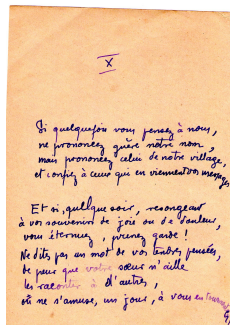 X
Si quelquefois vous pensez à nous,
ne prononcez guère notre nom,
mais prononcez celui de notre village,
et confiez à ceux qui en viennent vos messages
Et si, quelque soir, resongeant
à vos souvenirs de joie ou de douleur,
vous éternuez, prenez garde !
Ne dites pas un mot de vos tendres pensées,
de peur que votre sœur n'aille
les raconter à d'autres,
où ne s'amuse, un jour, à vous en
G.